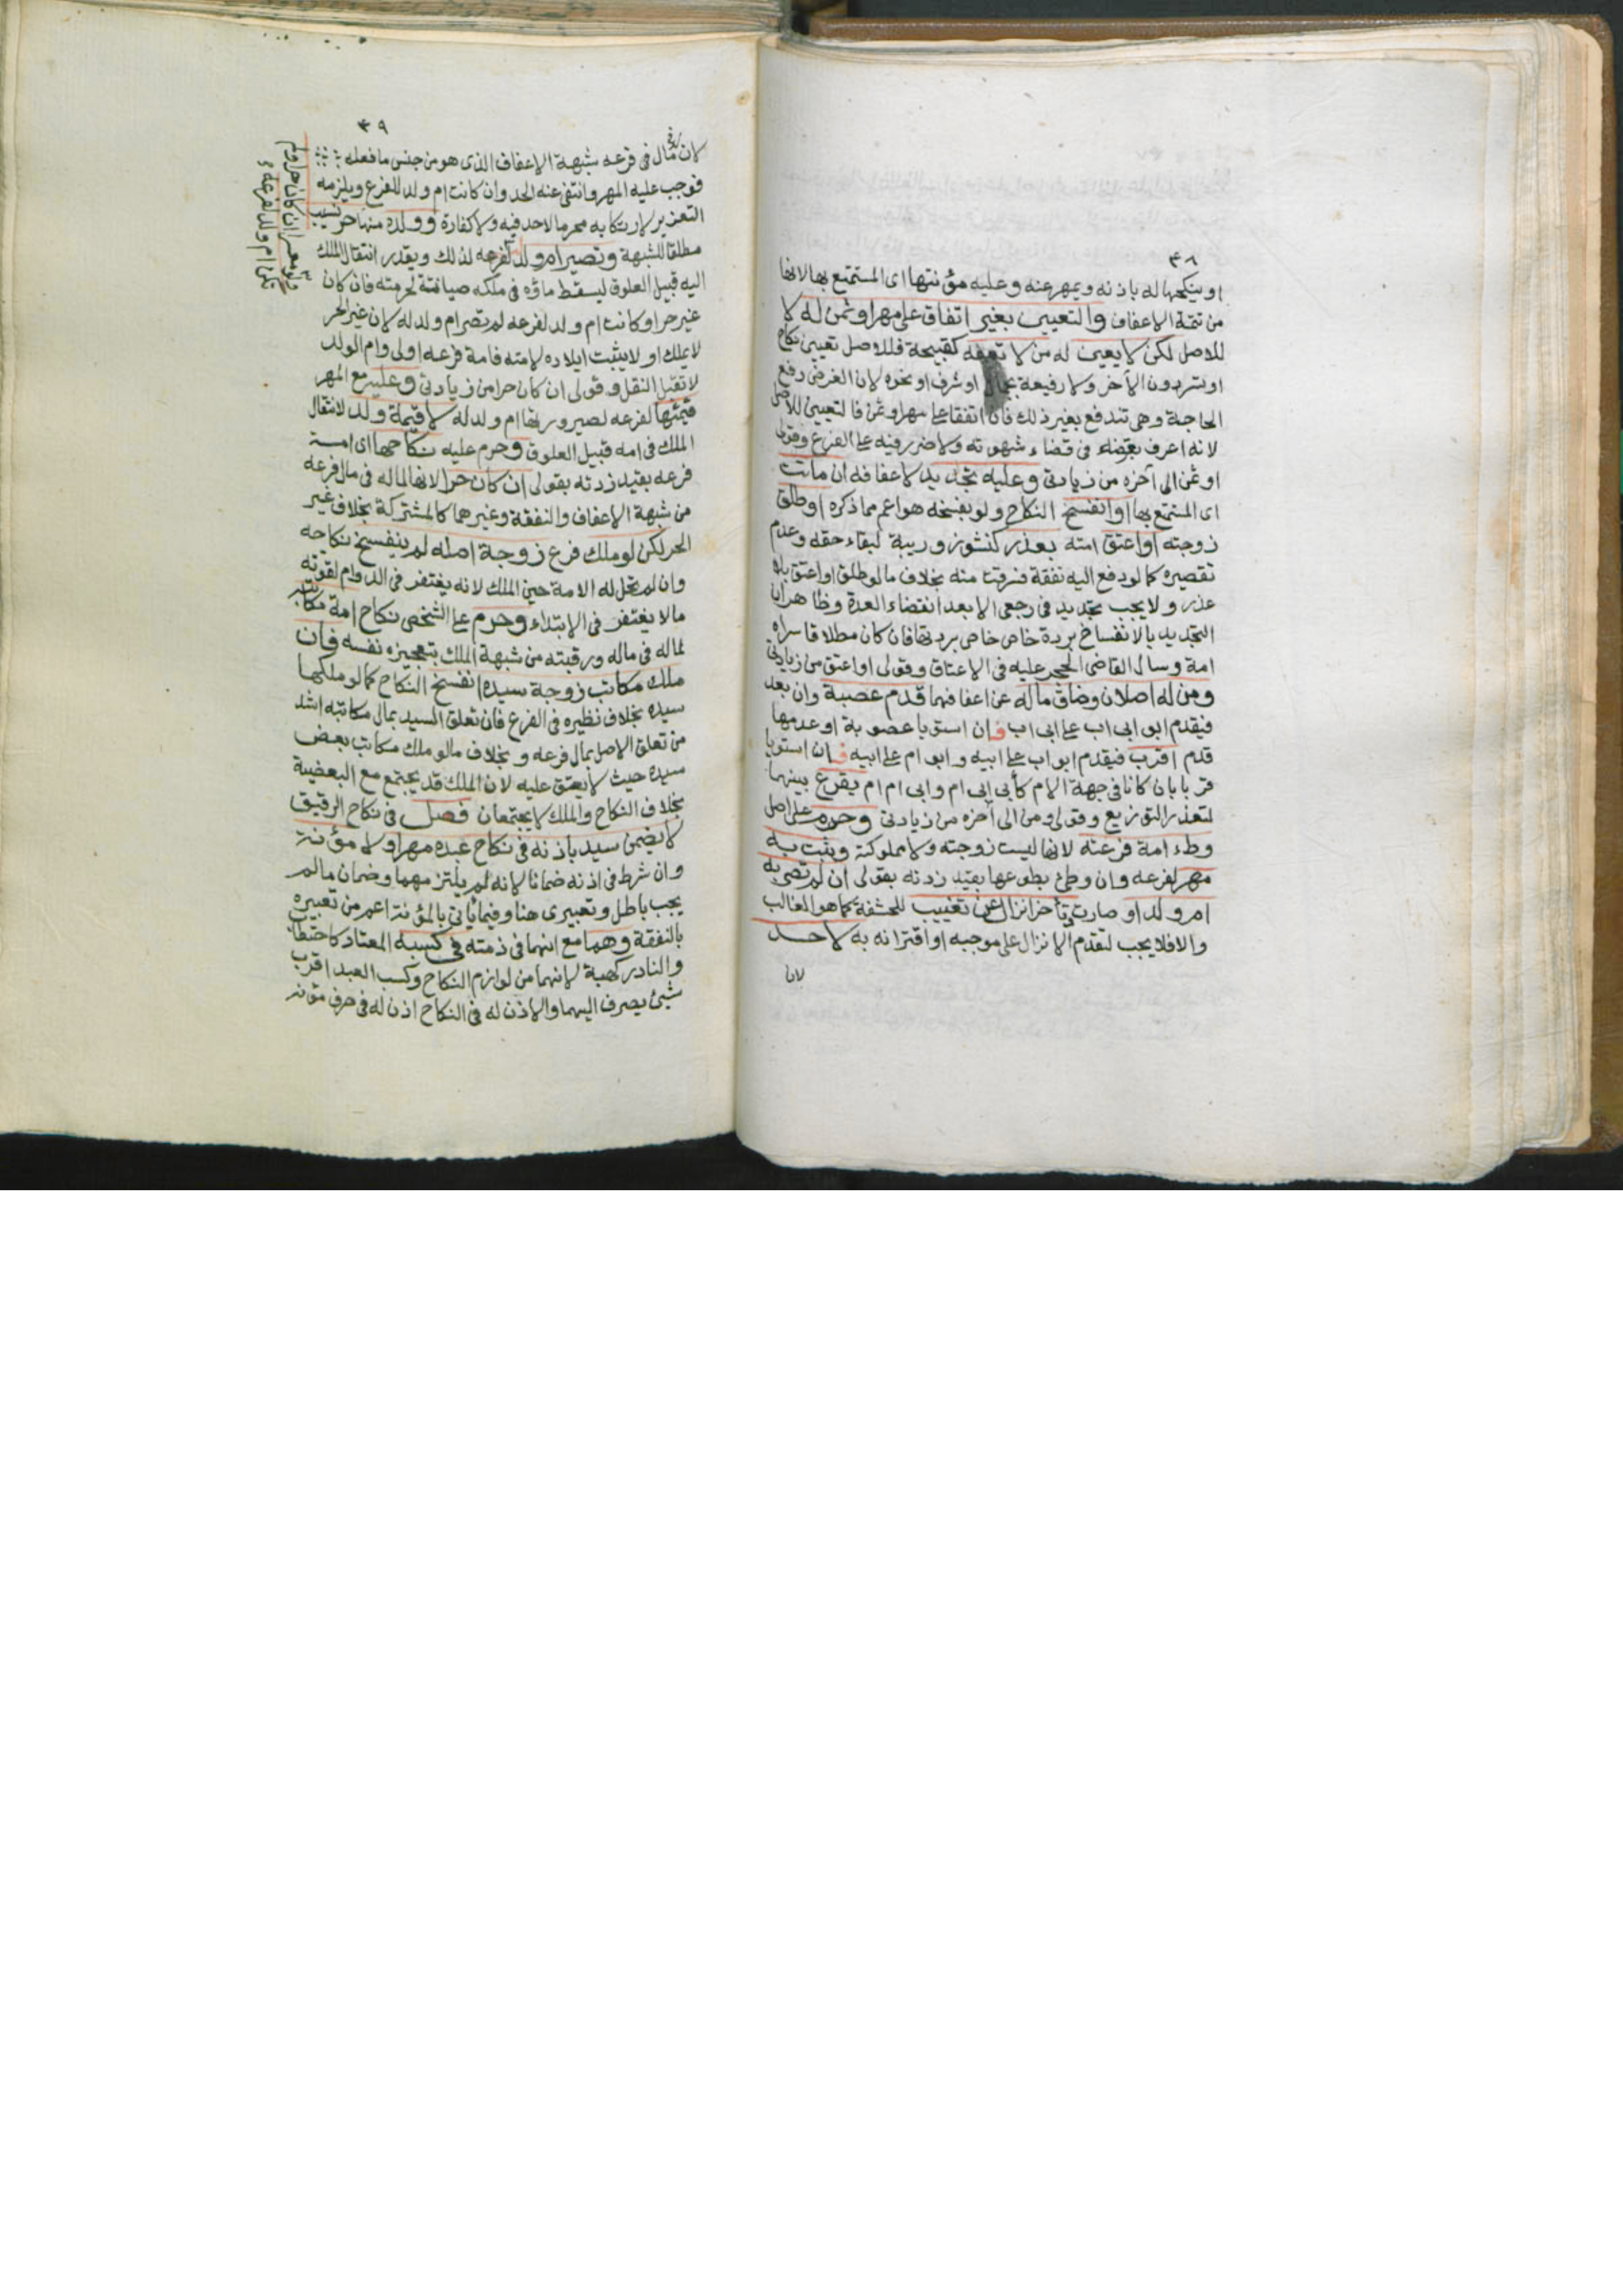 ٤٨
او ينكحها له باذنه ويمهر عنه وعليه مؤنتها اى المستمتع بها لانها
من تتمة الاعفاف والتعيين بغير اتفاق على مهر او ثمن له لا
للاصل لكن لا يعين له من لا تعفه كقبيحة فللاصل تعيين نكاح
او تسر دون الآخر ولا رفيعة بجمال او شرف او نحوه لان الغرض دفع
الحاجة وهى تندفع بغير ذلك فان اتفقا على مهر او ثمن فالتعيين للاصل
لانه اعرف بغرضه فى قضاء شهوته ولا ضرر فيه على الفرع وقولى
او ثمن الى آخره من زيادتى وعليه تجديد لاعفافه ان ماتت
اى المستمتع بها او انفسخ النكاح ولو بفسخه هو اعم مما ذكره او طلق
زوجته او اعتق امته بعذر كنشوز وريبة لبقاء حقه وعدم
تقصيره كما لو دفع اليه نفقة فسرقت منه بخلاف ما لو طلق او اعتق بلا
عذر ولا يجب تجديد فى رجعى الا بعد انقضاء العدة وظاهر ان
التجديد بالانفساخ بردة خاص خاص بردتها فان كان مطلاقا سراه
امة وسال القاضى الحجر عليه فى الاعتاق وقولى او اعتق من زيادتى
ومن له اصلان وضاق ماله عن اعفافهما قدم عصبة وان بعد
فيقدم ابو ابى اب على ابى اب فان استويا عصوبة او عدمها
قدم اقرب فيقدم ابو اب على ابيه وابو ام على ابيه فان استويا
قربا بان كانا فى جهة الام كأبى ابى ام وابى ام ام يقرع بينهما
لتعذر التوزيع وقولى ومن الى آخره من زيادتى وحرم على اصل
وطء امة فرعه لانها ليست زوجته ولا مملوكته ويثبت به
مهر لفرعه وان وطئ بطوعها بقيد زدته بقولى ان لم تصر به
ام ولد او صارت وتأخر انزال عن تغييب للحشفة كما هو الغالب
والا فلا يجب لتقدم الانزال على موجبه او اقترانه به لا حد
لان
٤٩
لان له فى مال فرعه شبهة الاعفاف الذى هو من جنس ما فعله
فوجب عليه المهر وانتفى عنه الحد وان كانت ام ولد للفرع ويلزمه
التعزير لارتكابه محرما لا حد فيه ولا كفارة وولده منها حر نسيب
مطلقا للشبهة وتصير ام ولد لفرعه لذلك ويقدر انتقال الملك
اليه قبيل العلوق ليسقط ماؤه فى ملكه صيانة لحرمته فان كان
غير حر او كانت ام ولد لفرعه لم تصر ام ولد له لان غير الحر
لا يملك او لا يثبت ايلاده لامته فامة فرعه اولى وام الولد
لا تقبل النقل وقولى ان كان حرا من زيادتى وعليه مع المهر
قيمتها لفرعه لصيرورتها ام ولد له لا قيمة ولد لانتقال
الملك فى امه قبيل العلوق وحرم عليه نكاحها اى امة
فرعه بقيد زدته بقولى ان كان حرا لانها لما له فى مال فرعه
من شبهة الاعفاف والنفقة وغيرهما كالمشتركة بخلاف غير
الحر لكن لو ملك فرع زوجة اصله لم ينفسخ نكاحه
وان لم تحل له الامة حين الملك لانه يغتفر فى الدوام لقوته
ما لا يغتفر فى الابتداء وحرم على الشخص نكاح امة مكاتبه
لما له فى ماله ورقبته من شبهة الملك بتعجيزه نفسه فان
ملك مكاتب زوجة سيده انفسخ النكاح كما لو ملكها
سيده بخلاف نظيره فى الفرع فان تعلق السيد بمال مكاتبه اشد
من تعلق الاصل بمال فرعه وبخلاف ما لو ملك مكاتب بعض
سيده حيث لا يعتق عليه لان الملك قد يجتمع مع البعضية
بخلاف النكاح والملك لا يجتمعان فصل فى نكاح الرقيق
لا يضمن سيد باذنه فى نكاح عبده مهرا ولا مؤنة
وان شرط فى اذنه ضمانا لانه لم يلتزمهما وضمان ما لم
يجب باطل وتعبيرى هنا وفيما يأتى بالمؤنة اعم من تعبيره
بالنفقة وهما مع انهما فى ذمته فى كسبه المعتاد كاحتطاب
والنادر كهبة لانهما من لوازم النكاح وكسب العبد اقرب
شئ يصرف اليهما والاذن له فى النكاح اذن له فى صرف مؤنه
ان كان حرا ولم
تكن ام ولد لفرعه